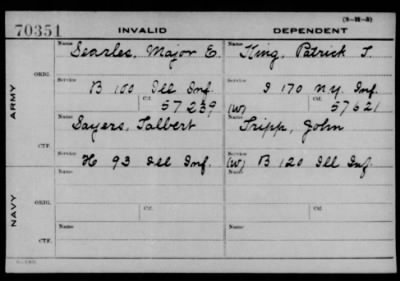 (3-H-3)
70351 INVALID DEPENDENT
ARMY
ORIG.
Name Searles, Major E. Name King, Patrick T.
Service B 100 Ill Inf. Service I 170 N.Y. Inf.
Ctf. 57239 (W) Ctf. 57621
CTF.
Name Sayers, Talbert Name Tripp, John
Service H 93 Ill Inf. Service (W) B 120 Ill Inf.
NAVY
ORIG.
Name Name
Service Ctf. Service Ctf.
CTF.
Name Name
Service Service